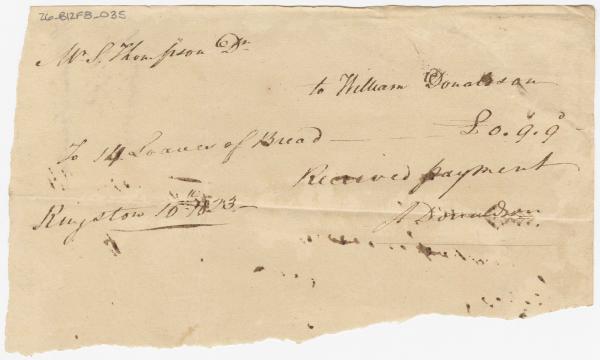 26-B12FB-035
Mr S. Thompson Dr
to William Donaldson
To 14 Loaves of Bread — £0.9.9d
Received payment
Kingston 10th 1823 Donaldson